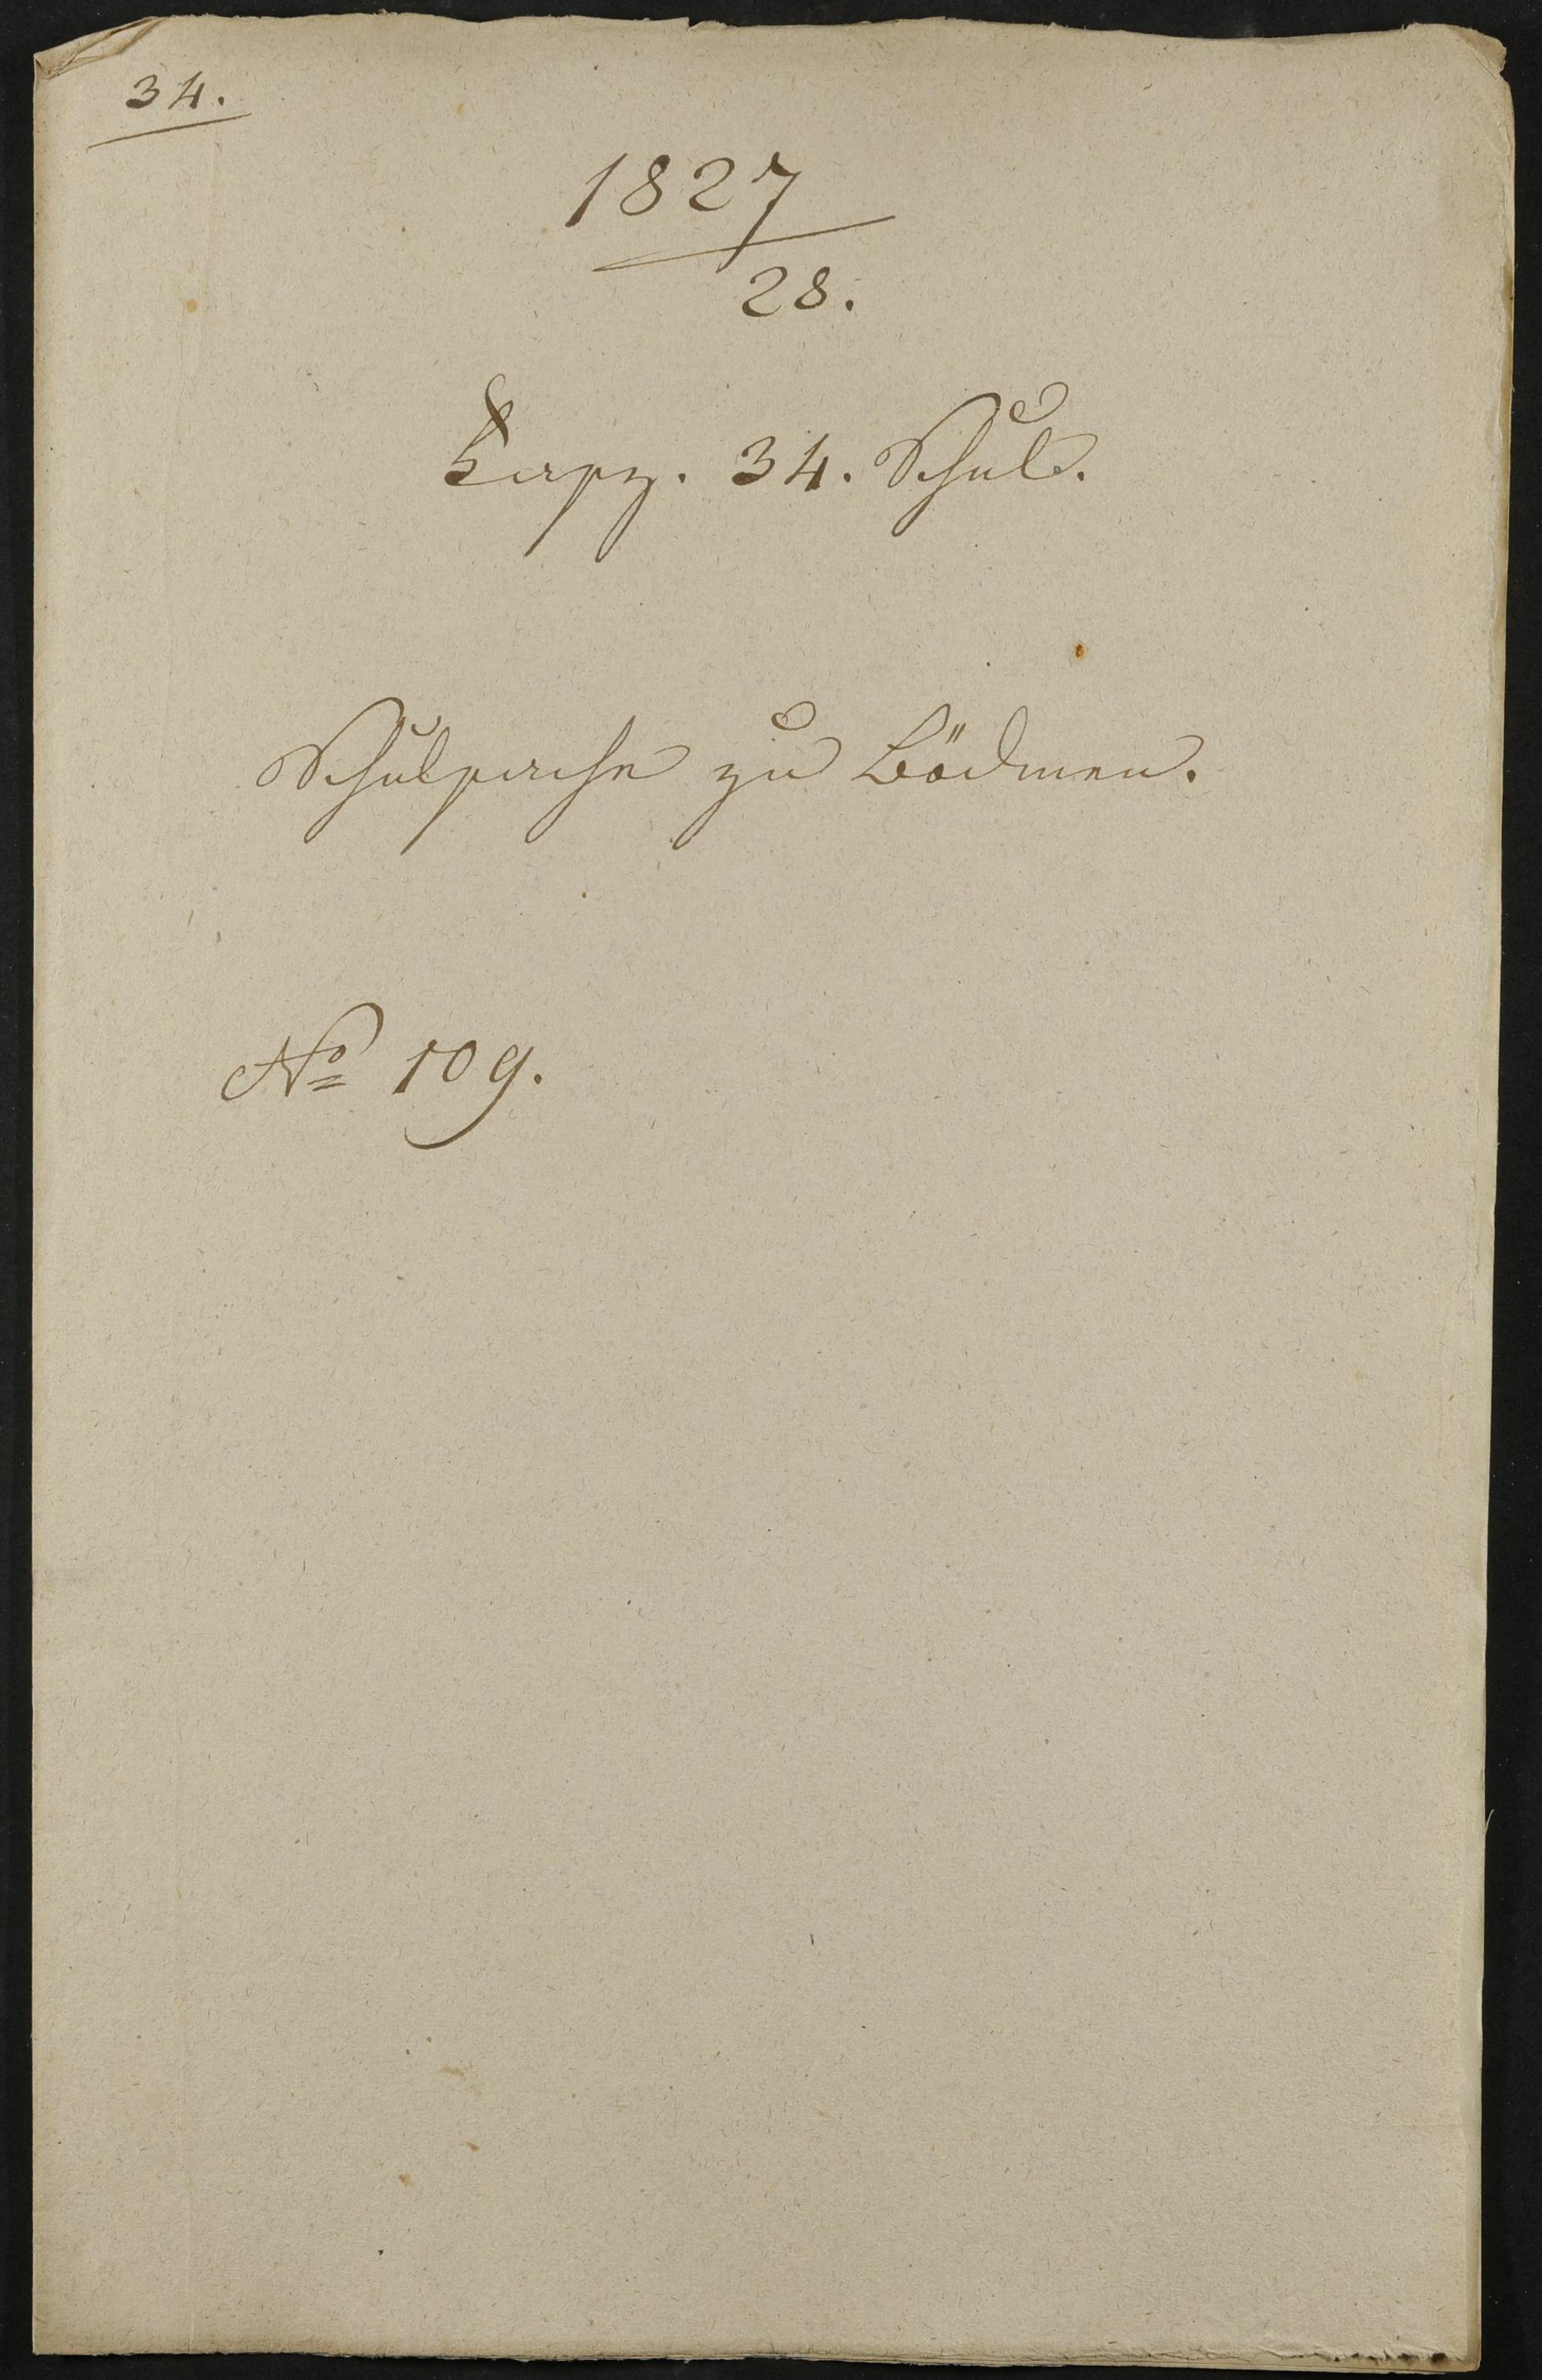 34.
1827
28.
Fasz. 34. Schul.
Schulsache zu Bödmen.
No 109.